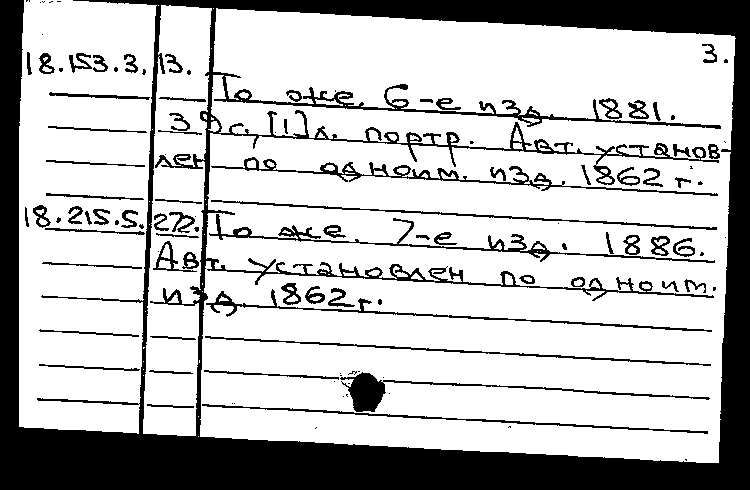 3.
18.153.3.13. То же. 6-е изд. 1881.
39 с., [1] л. портр. Авт. установ-
лен по одноим. изд. 1862 г.
18.215.5.272. То же. 7-е изд. 1886.
Авт. установлен по одноим.
изд. 1862 г.